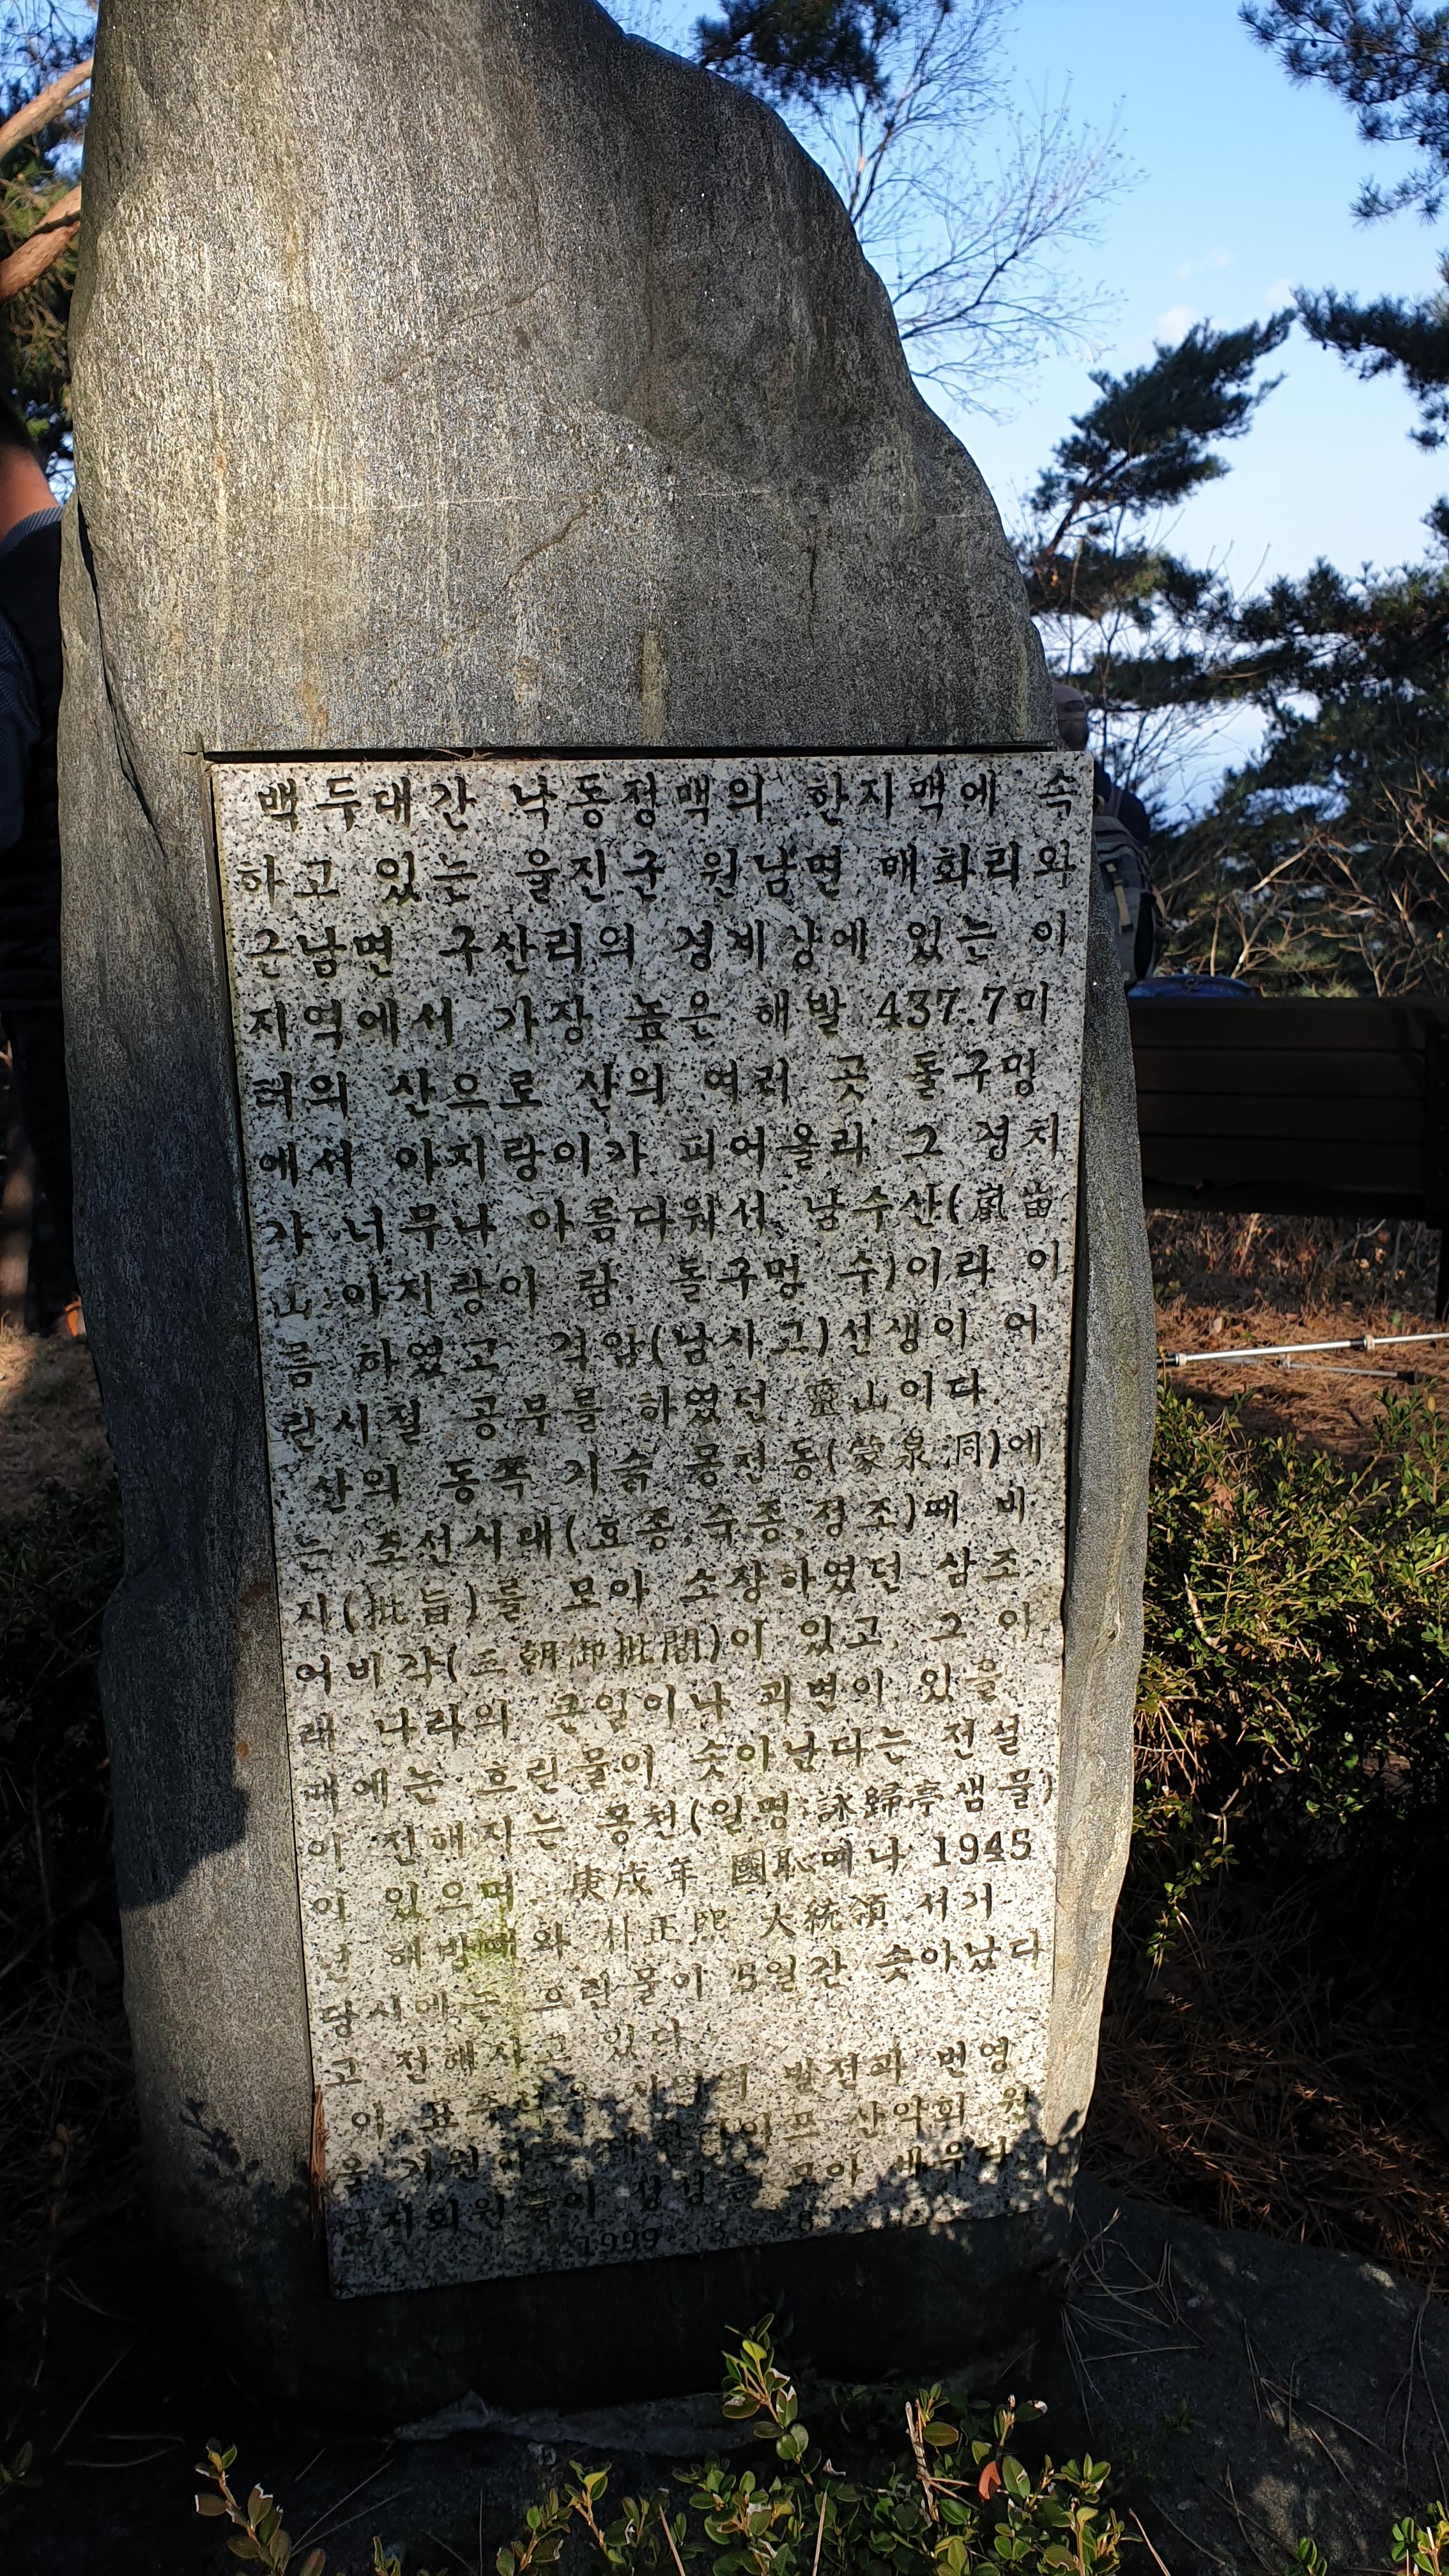 백두대간 낙동정맥의 한지맥에 속
하고 있는 울진군 원남면 매화리와
근남면 구산리의 경계상에 있는 이
지역에서 가장 높은 해발 437.7미
터의 산으로 산의 여러 곳 돌구멍
에서 아지랑이가 피어올라 그 경치
가 너무나 아름다워서 남수산(嵐峀
山:아지랑이 람, 돌구멍 수)이라 이
름 하였고 격암(남사고)선생이 어
린시절 공부를 하였던 靈山이다.
산의 동쪽 기슭 몽천동(蒙泉洞)에
는 조선시대(효종,숙종,정조)때 비
지(批旨)를 모아 소장하였던 삼조
어비각(三朝御批閣)이 있고, 그 아
래 나라의 큰일이나 괴변이 있을
때에는 흐린물이 솟아난다는 전설
이 전해지는 몽천(일명:詠歸亭샘물)
이 있으며, 庚戌年 國恥때나 1945
년 해방때와 朴正熙 大統領 서거
당시에는 흐린물이 5일간 솟아났다
고 전해지고 있다
이 표주석은 지역의 발전과 번영
을 기원하는 산악회 원
남지회원들이 정성을 모아 세우다.
1999 8